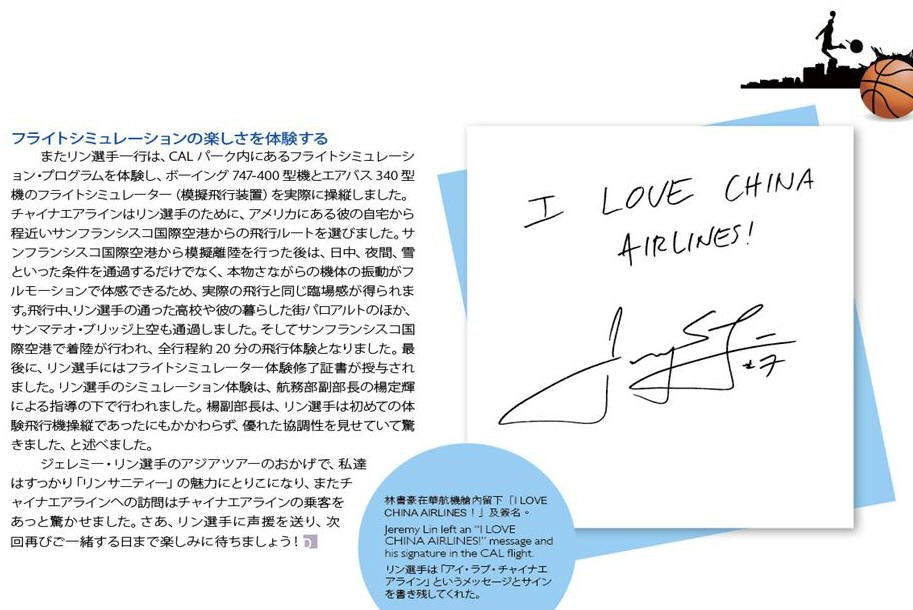 フライトシミュレーションの楽しさを体験する
またリン選手一行は、CAL パーク内にあるフライトシミュレーシ
ョン・プログラムを体験し、ボーイング 747-400 型機とエアバス 340 型
機のフライトシミュレーター（模擬飛行装置）を実際に操縦しました。
チャイナエアラインはリン選手のために、アメリカにある彼の自宅から
程近いサンフランシスコ国際空港からの飛行ルートを選びました。サ
ンフランシスコ国際空港から模擬離陸を行った後は、日中、夜間、雪
といった条件を通過するだけでなく、本物さながらの機体の振動がフ
ルモーションで体感できるため、実際の飛行と同じ臨場感が得られま
す。飛行中、リン選手の通った高校や彼の暮らした街パロアルトのほか、
サンマテオ・ブリッジ上空も通過しました。そしてサンフランシスコ国
際空港で着陸が行われ、全行程約 20 分の飛行体験となりました。最
後に、リン選手にはフライトシミュレーター体験修了証書が授与され
ました。リン選手のシミュレーション体験は、航務部副部長の楊定輝
による指導の下で行われました。楊副部長は、リン選手は初めての体
験飛行機操縦であったにもかかわらず、優れた協調性を見せていて驚
きました、と述べました。
ジェレミー・リン選手のアジアツアーのおかげで、私達
はすっかり「リンサニティー」の魅力にとりこになり、またチ
ャイナエアラインへの訪問はチャイナエアラインの乗客を
あっと驚かせました。さあ、リン選手に声援を送り、次
回再びご一緒する日まで楽しみに待ちましょう！
I LOVE CHINA
AIRLINES!
林書豪在華航機艙內留下「I LOVE
CHINA AIRLINES！」及簽名。
Jeremy Lin left an "I LOVE
CHINA AIRLINES!" message and
his signature in the CAL flight.
リン選手は「アイ・ラブ・チャイナエ
アライン」というメッセージとサイン
を書き残してくれた。